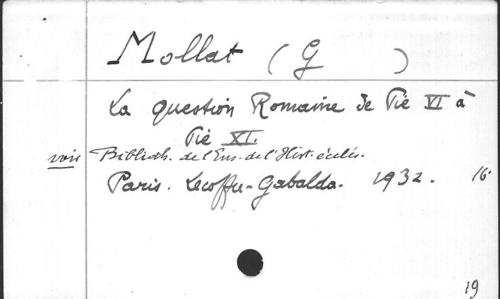 Mollat (G )
La question Romaine de Pie VI à
Pie XI.
voir Biblioth. de l'Ens. de l'Hist. ecclés.
Paris. Lecoffre-Gabalda. 1932. 16°
19